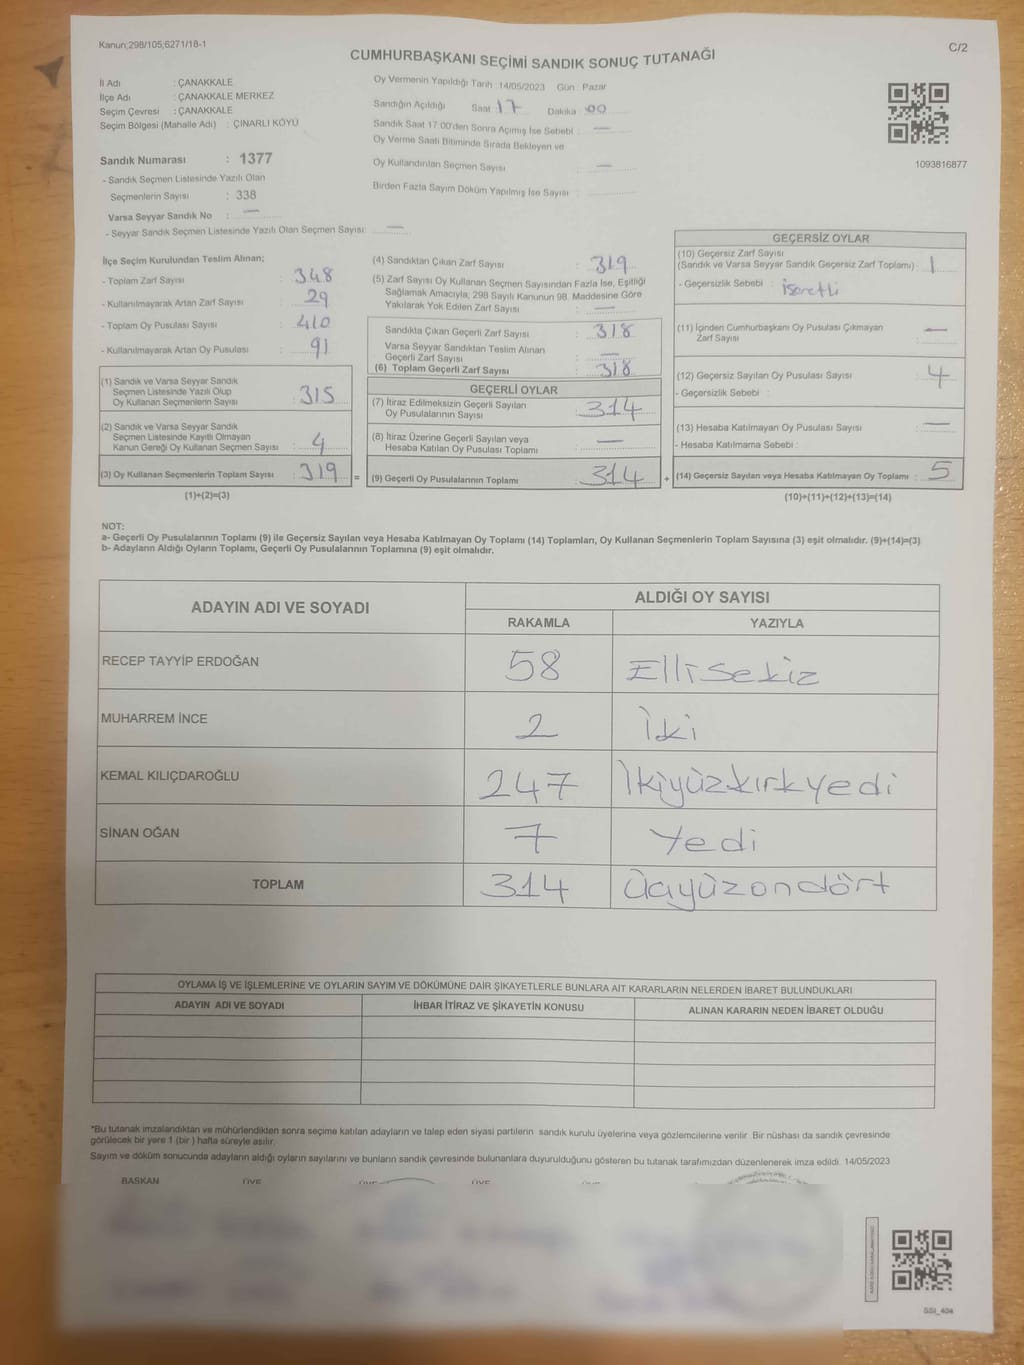 Kanun;298/105;6271/18-1
C/2
CUMHURBAŞKANI SEÇİMİ SANDIK SONUÇ TUTANAĞI
İl Adı : ÇANAKKALE
İlçe Adı : ÇANAKKALE MERKEZ
Seçim Çevresi : ÇANAKKALE
Seçim Bölgesi (Mahalle Adı) : ÇINARLI KÖYÜ
Sandık Numarası : 1377
- Sandık Seçmen Listesinde Yazılı Olan
Seçmenlerin Sayısı : 338
Varsa Seyyar Sandık No : —
- Seyyar Sandık Seçmen Listesinde Yazılı Olan Seçmen Sayısı: —
Oy Vermenin Yapıldığı Tarih : 14/05/2023 Gün : Pazar
Sandığın Açıldığı Saat 17 Dakika 00
Sandık Saat 17:00'den Sonra Açımış İse Sebebi : —
Oy Verme Saati Bitiminde Sırada Bekleyen ve
Oy Kullandırılan Seçmen Sayısı : —
Birden Fazla Sayım Döküm Yapılmış İse Sayısı :
1093816877
İlçe Seçim Kurulundan Teslim Alınan;
- Toplam Zarf Sayısı : 348
- Kullanılmayarak Artan Zarf Sayısı : 29
- Toplam Oy Pusulası Sayısı : 410
- Kullanılmayarak Artan Oy Pusulası : 91
(1) Sandık ve Varsa Seyyar Sandık
Seçmen Listesinde Yazılı Olup
Oy Kullanan Seçmenlerin Sayısı : 315
(2) Sandık ve Varsa Seyyar Sandık
Seçmen Listesinde Kayıtlı Olmayan
Kanun Gereği Oy Kullanan Seçmen Sayısı : 4
(3) Oy Kullanan Seçmenlerin Toplam Sayısı : 319
(1)+(2)=(3)
=
(4) Sandıktan Çıkan Zarf Sayısı : 319
(5) Zarf Sayısı Oy Kullanan Seçmen Sayısından Fazla İse, Eşitliği
Sağlamak Amacıyla, 298 Sayılı Kanunun 98. Maddesine Göre
Yakılarak Yok Edilen Zarf Sayısı : —
Sandıkta Çıkan Geçerli Zarf Sayısı : 318
Varsa Seyyar Sandıktan Teslim Alınan
Geçerli Zarf Sayısı : —
(6) Toplam Geçerli Zarf Sayısı : 318
GEÇERLİ OYLAR
(7) İtiraz Edilmeksizin Geçerli Sayılan
Oy Pusulalarının Sayısı : 314
(8) İtiraz Üzerine Geçerli Sayılan veya
Hesaba Katılan Oy Pusulası Toplamı : —
(9) Geçerli Oy Pusulalarının Toplamı : 314
+
GEÇERSİZ OYLAR
(10) Geçersiz Zarf Sayısı
(Sandık ve Varsa Seyyar Sandık Geçersiz Zarf Toplamı) : 1
- Geçersizlik Sebebi : işaretli
(11) İçinden Cumhurbaşkanı Oy Pusulası Çıkmayan
Zarf Sayısı : —
(12) Geçersiz Sayılan Oy Pusulası Sayısı : 4
- Geçersizlik Sebebi :
(13) Hesaba Katılmayan Oy Pusulası Sayısı : —
- Hesaba Katılmama Sebebi :
(14) Geçersiz Sayılan veya Hesaba Katılmayan Oy Toplamı : 5
(10)+(11)+(12)+(13)=(14)
NOT:
a- Geçerli Oy Pusulalarının Toplamı (9) ile Geçersiz Sayılan veya Hesaba Katılmayan Oy Toplamı (14) Toplamları, Oy Kullanan Seçmenlerin Toplam Sayısına (3) eşit olmalıdır. (9)+(14)=(3)
b- Adayların Aldığı Oyların Toplamı, Geçerli Oy Pusulalarının Toplamına (9) eşit olmalıdır.
ADAYIN ADI VE SOYADI ALDIĞI OY SAYISI
RAKAMLA YAZIYLA
RECEP TAYYİP ERDOĞAN 58 Ellisekiz
MUHARREM İNCE 2 İki
KEMAL KILIÇDAROĞLU 247 İkiyüzkırkyedi
SİNAN OĞAN 7 Yedi
TOPLAM 314 Üçyüzondört
OYLAMA İŞ VE İŞLEMLERİNE VE OYLARIN SAYIM VE DÖKÜMÜNE DAİR ŞİKAYETLERLE BUNLARA AİT KARARLARIN NELERDEN İBARET BULUNDUKLARI
ADAYIN ADI VE SOYADI İHBAR İTİRAZ VE ŞİKAYETİN KONUSU ALINAN KARARIN NEDEN İBARET OLDUĞU
*Bu tutanak imzalandıktan ve mühürlendikten sonra seçime katılan adayların ve talep eden siyasi partilerin sandık kurulu üyelerine veya gözlemcilerine verilir. Bir nüshası da sandık çevresinde
görülecek bir yere 1 (bir ) hafta süreyle asılır.
Sayım ve döküm sonucunda adayların aldığı oyların sayılarını ve bunların sandık çevresinde bulunanlara duyurulduğunu gösteren bu tutanak tarafımızdan düzenlenerek imza edildi. 14/05/2023
BAŞKAN ÜYE ÜYE ÜYE ÜYE
SSI_404